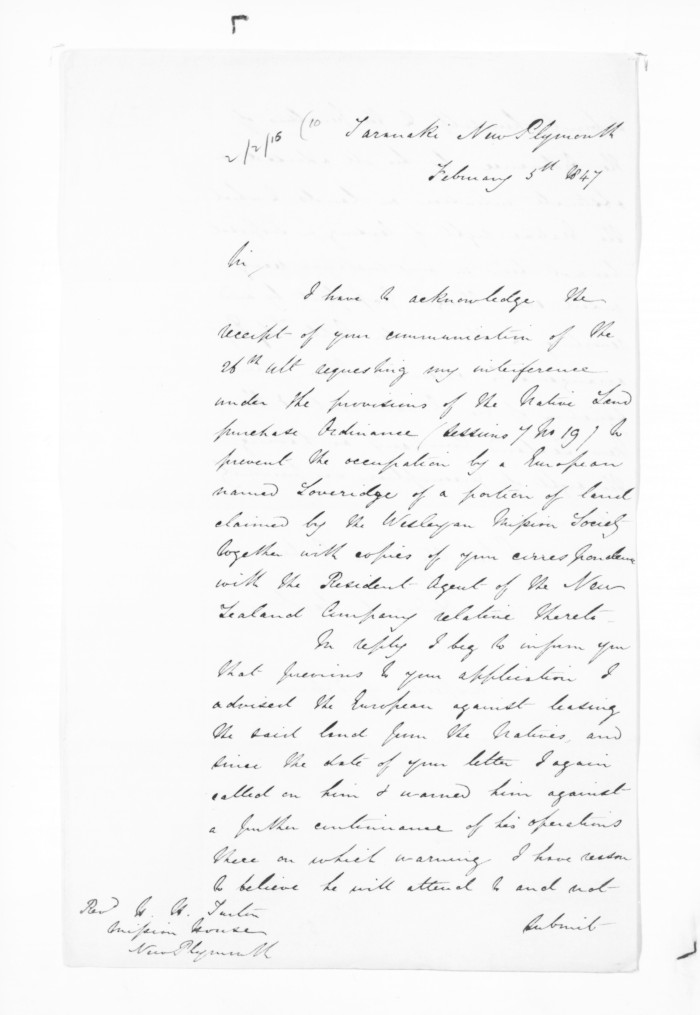 2/2/16 (10
Taranaki New Plymouth
February 5th 1847
Sir,
I have to acknowledge the
receipt of your communication of the
26th ult requesting my interference
under the provisions of the Native Land
purchase Ordinance (Sessions 7 No 19) to
prevent the occupation by a European
named Loveridge of a portion of land
claimed by the Wesleyan Mission Society
together with copies of your correspondence
with the Resident Agent of the New
Zealand Company relative thereto.
In reply I beg to inform you
that previous to your application I
advised the European against leasing
the said land from the Natives, and
since the date of your letter I again
called on him & warned him against
a further continuance of his operations
there on which warning I have reason
to believe he will attend to and not
submit
Revd H. H. Turton
Mission House
New Plymouth